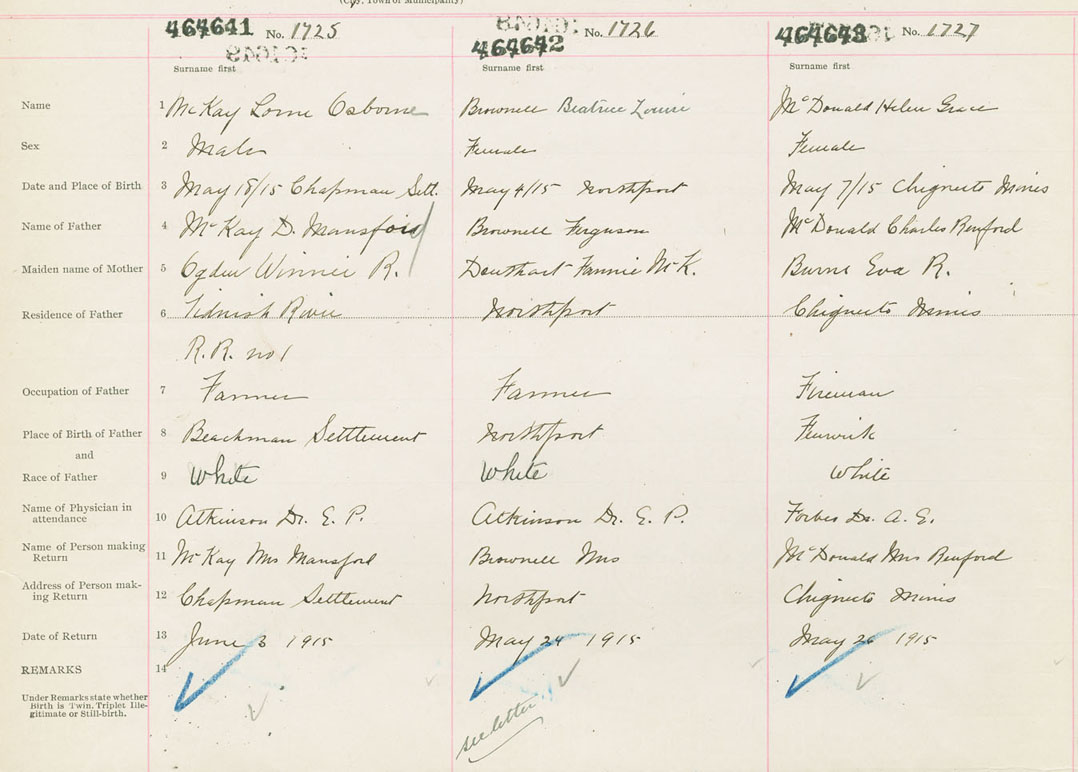 (City, Town or Municipality)
464641 No. 1725 464642 No. 1726 464643 No. 1727
Surname first Surname first Surname first
Name 1 McKay Lorne Osborne Brownell Beatrice Louise McDonald Helen Grace
Sex 2 Male Female Female
Date and Place of Birth 3 May 18/15 Chapman Sett. May 4/15 Northport May 7/15 Chignecto Mines
Name of Father 4 McKay D. Mansford Brownell Ferguson McDonald Charles Renford
Maiden name of Mother 5 Ogden Winnie R. Douthart Fannie McK. Burns Eva R.
Residence of Father 6 Tidnish River Northport Chignecto Mines
R.R. no 1
Occupation of Father 7 Farmer Farmer Fireman
Place of Birth of Father 8 Beachman Settlement Northport Fenwick
and
Race of Father 9 White White White
Name of Physician in attendance 10 Atkinson Dr. E. P. Atkinson Dr. E. P. Forbes Dr. A. E.
Name of Person making Return 11 McKay Mrs Mansford Brownell Mrs McDonald Mrs Renford
Address of Person making Return 12 Chapman Settlement Northport Chignecto Mines
Date of Return 13 June 3 1915 May 24 1915 May 26 1915
REMARKS 14
Under Remarks state whether
Birth is Twin, Triplet Ille-
gitimate or Still-birth.
see letter